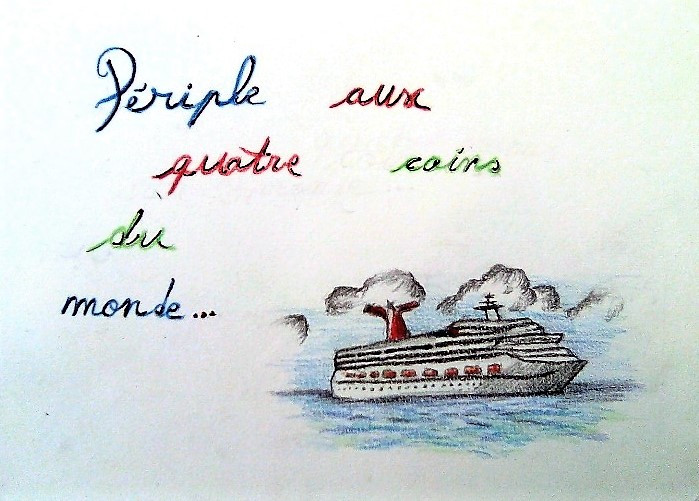 Périple aux
quatre coins
du
monde...